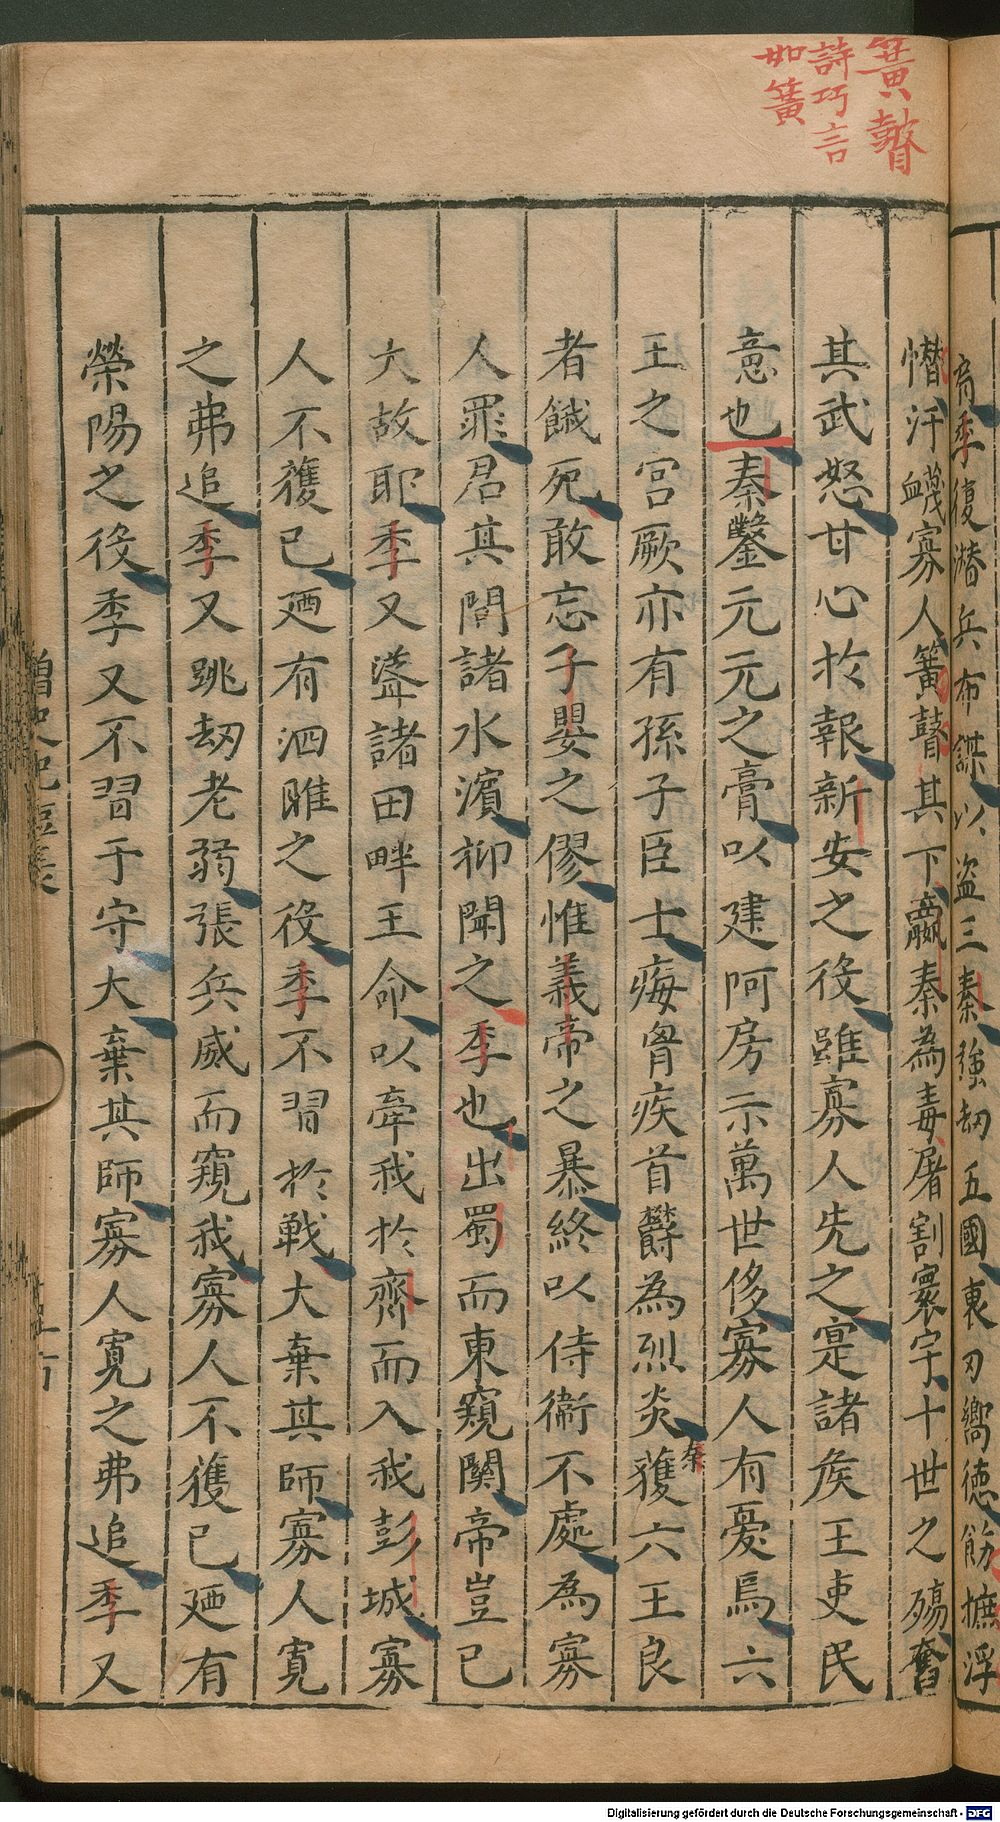 簧鼓
詩巧言
如簧
齊季復潜兵布謀以盗三秦強刼五國裹刃嚮德飭摭浮
憯汗衊寡人簧鼓其下嬴秦為毒屠割寰宇十世之殤奮
其武怒甘心扵報新安之役雖寡人先之寔諸矦王吏民
意也秦鑿元元之膏以建阿房示萬世侈寡人有憂焉六
王之宫厥亦有孫子臣士痗胷疾首欝為烈炎獲六王良
秦
者餓死敢忘子嬰之僇惟義帝之暴終以侍衞不處為寡
人罪君其問諸水濵抑聞之季也出蜀而東窺關帝豈已
大故耶季又盗諸田畔王命以牽我扵齊而入我彭城寡
人不獲已廼有泗睢之役季不習扵戰大棄其師寡人寛
之弗追季又跳刼老弱張兵威而窺我寡人不獲已廼有
榮陽之役季又不習于守大棄其師寡人寛之弗追季又
Digitalisierung gefördert durch die Deutsche Forschungsgemeinschaft - DFG